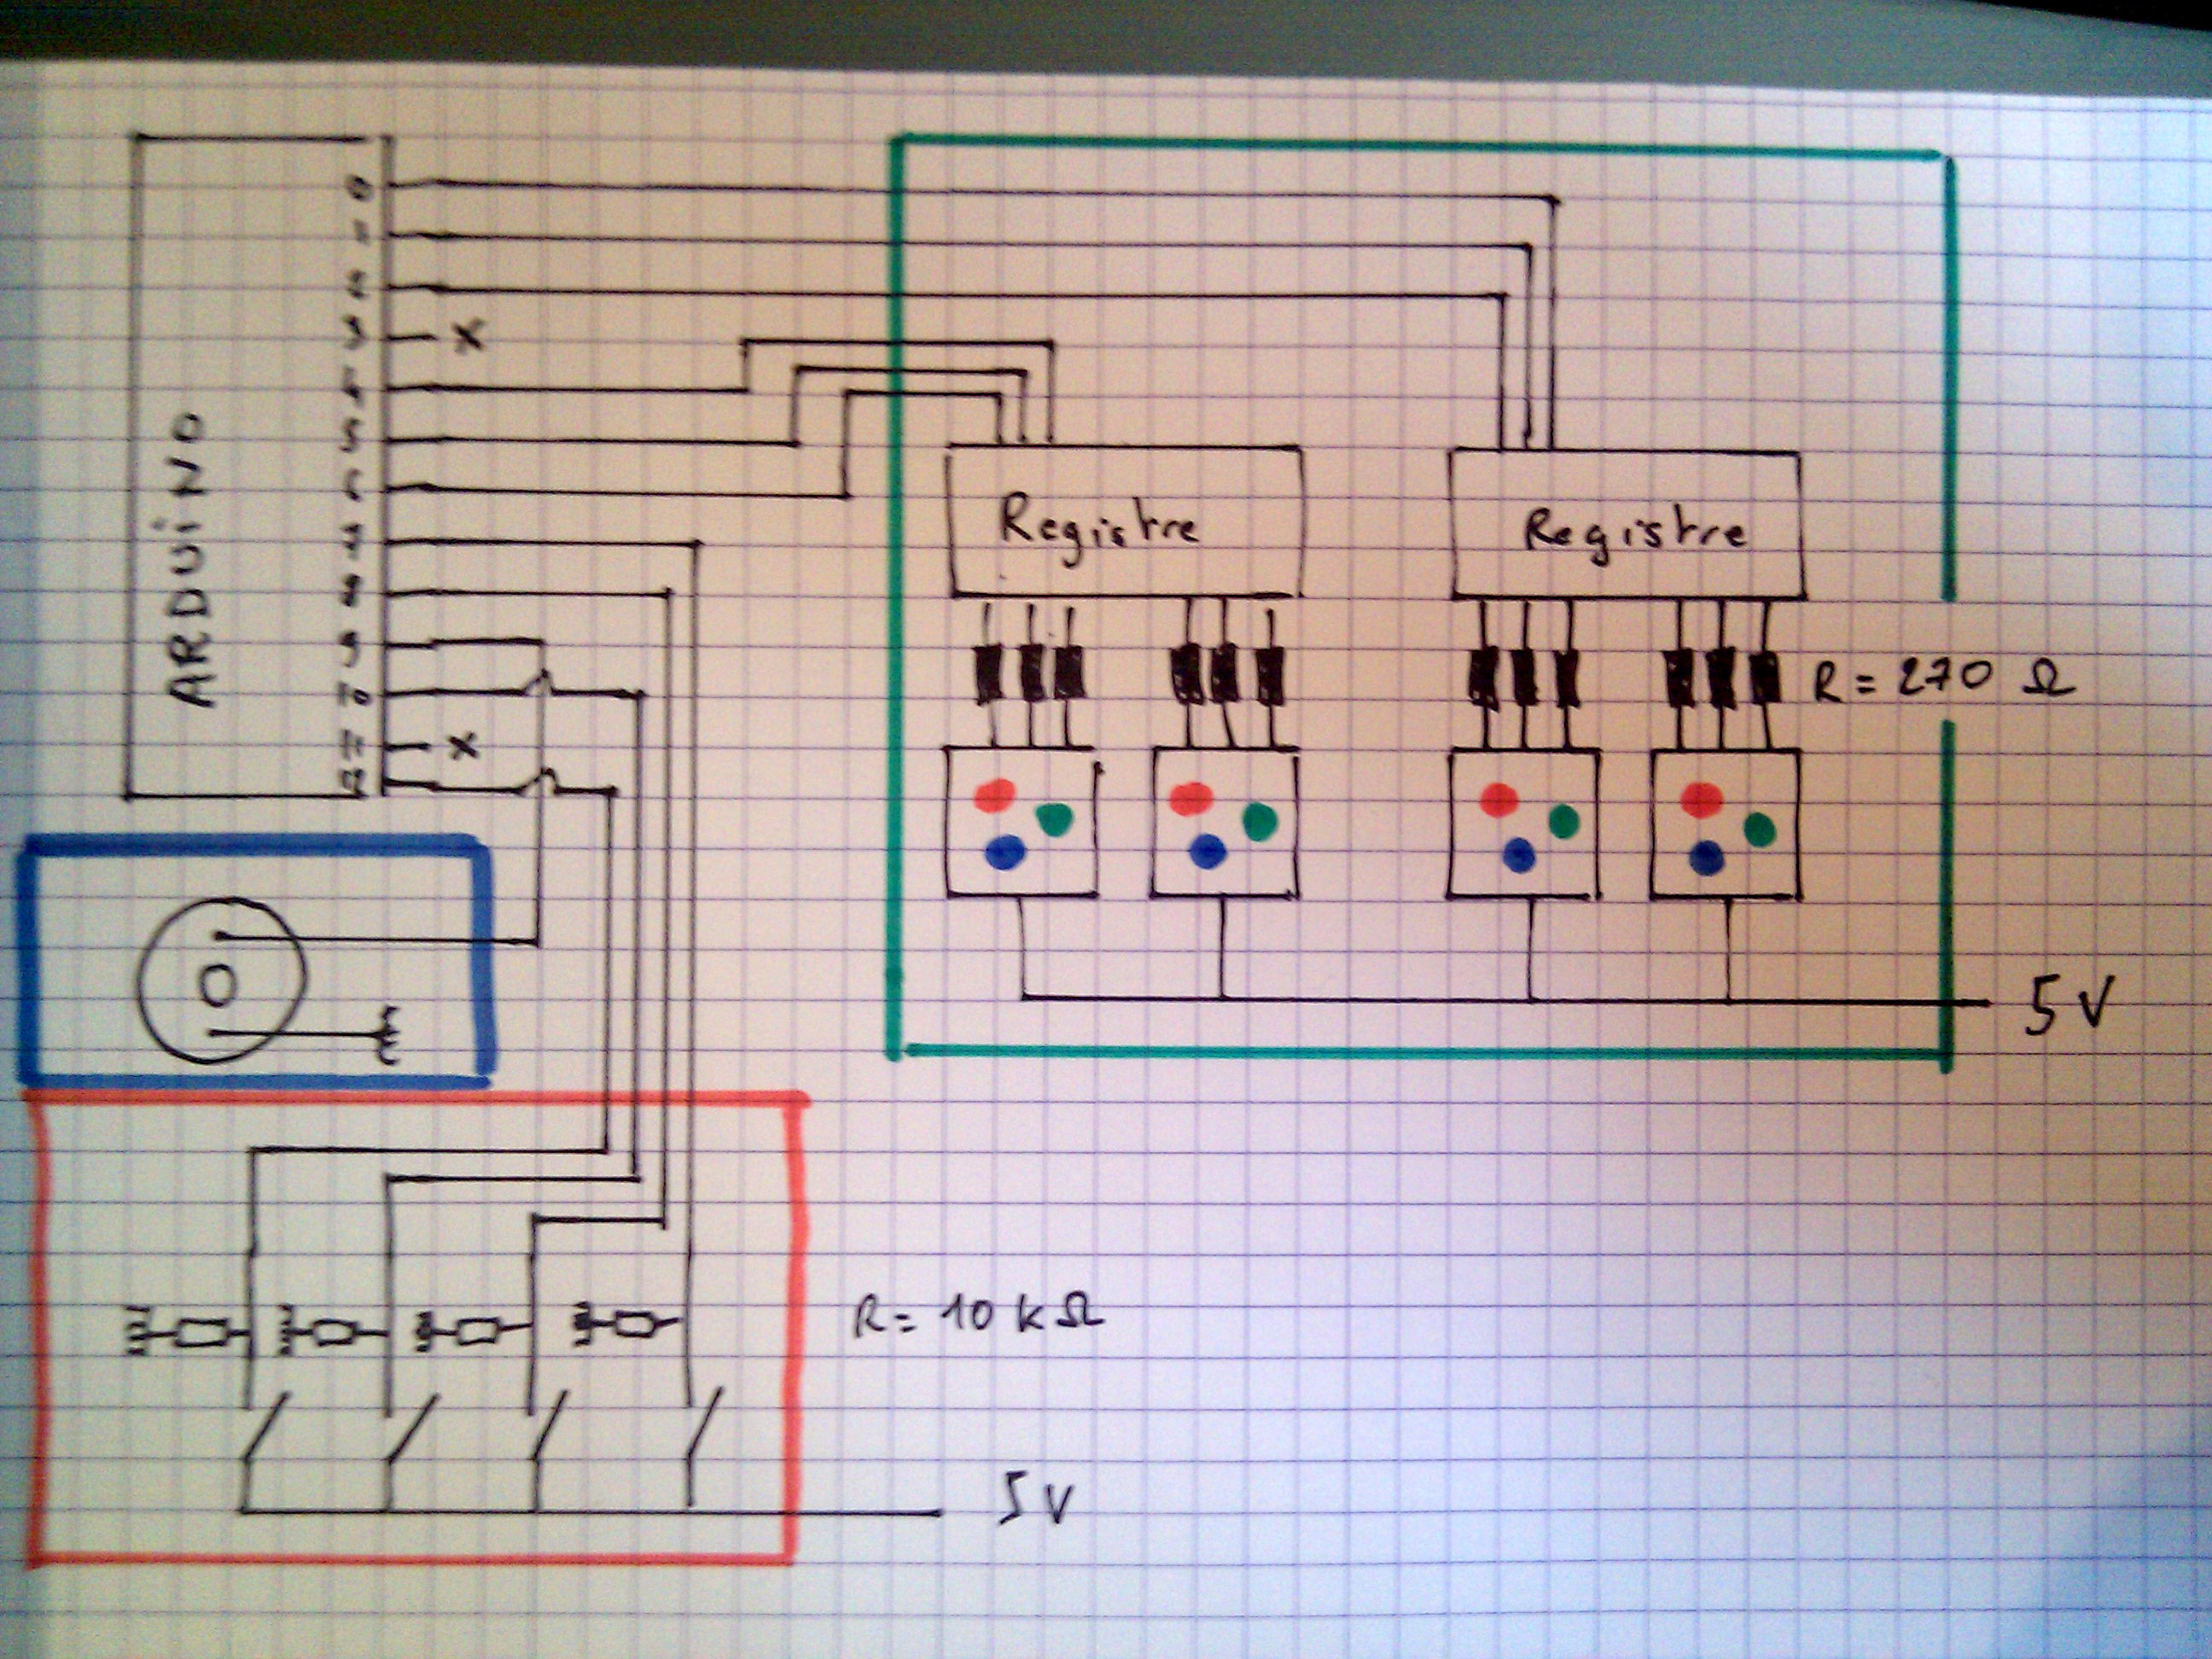 ARDUiNO
0
1
2
3
X
4
5
6
7
8
9
10
11
X
12
Registre
Registre
R = 270 Ω
5V
R = 10 kΩ
5V